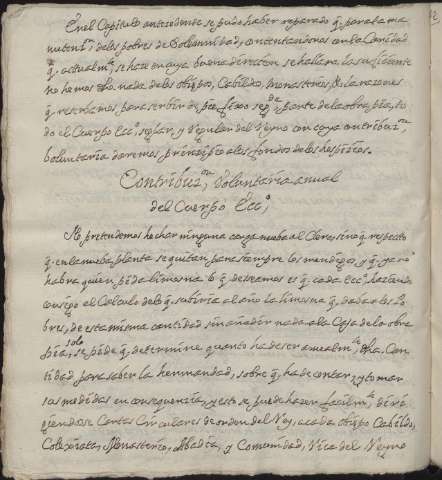 En el Capitulo antecedente se pudo haber reparado q.e para la ma
nutenz.n de los pobres de Solemnidad, contentandonos con la Caridad
q.e actualm.te se hace en cuya buena direccion se hallara lo suficiente
no hemos hechado nada de los obispos, Cabildos, Monasterios, & la razon es
q.e reservamos para servir de pie fixo a la seg.da parte de la obra pia, to
do el Cuerpo Ecc.o seglar, y Regular del Reyno con cuya contribuz.n
voluntaria daremos principio a los fondos de los hospicios.
Contribuz.n Voluntaria anual
del Cuerpo Ecc.o
No pretendemos hechar ninguna carga nueba al Clero sino q.e respecto
q.e en la nueba planta se quitan para siempre los mendigos, y q.e ya no
habra quien pida limosna lo q.e deseamos es q.e cada Ecc.o haciendo
consigo el Calculo de lo q.e subiria al año la limosna q.e daba a los Po
bres, de esta misma cantidad sin añadir nada a la Caja de la obra
pia, solo se pide q.e determine quanto ha de ser anualm.te dha. Can
tidad para saber la hermandad, sobre q.e ha de contar, y tomar
sus medidas en consequenzia, y esto se puede hacer facilm.te diri
giendose Cartas Circulares de orden del Rey, a cada obispo Cabildo,
Colexiata, Monasterio, Abadia, y Comunidad, Rica del Reyno